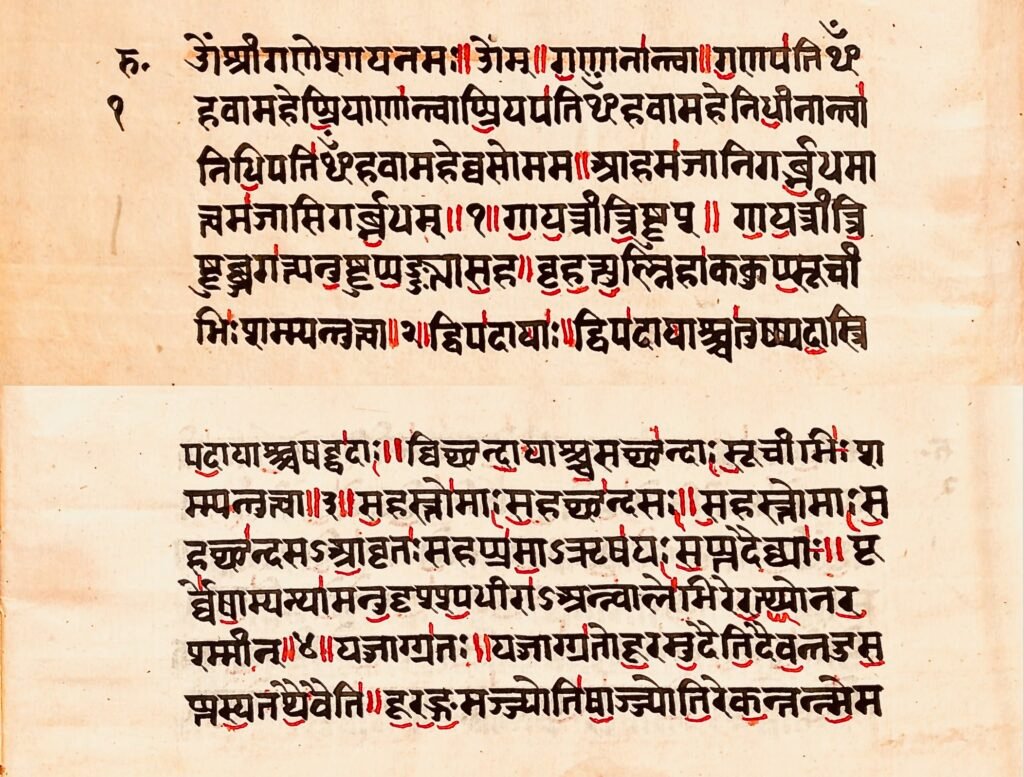 रु. ॐश्रीगणेशायनमः॥ ॐम्॥ गणानान्त्वा॥ गणपतिᳪ
१ हवामहेप्प्रियाणान्त्वाप्प्रियपतिᳪहवामहेनिधीनान्त्वा
निधिपतिᳪहवामहेव्वसोमम॥ आहमजानिगर्ब्भधमा
त्वमजासिगर्ब्भधम्॥ १॥ गायत्त्रीत्रिष्टुप्॥ गायत्त्रीत्रि
ष्टुब्जगत्यनुष्टुप्पङ्क्त्यासह॥ बृहत्युष्णिहाककुप्प्सूची
भिः शम्म्यन्तुत्वा॥ २॥ द्विपदायाः॥ द्विपदायाश्चतुष्प्पदास्त्रि
पदायाश्चषट्पदाः॥ व्विच्छन्दायाश्चसच्छन्दाः सूचीभिः श
म्म्यन्तुत्वा॥ ३॥ सहस्तोमाः सहच्छन्दसः॥ सहस्तोमाः स
हच्छन्दसऽआवृतः सहप्प्रमाऽऋषयः सप्प्तदैव्याः॥ पू
र्व्वेषाम्पन्थामनुदृश्यधीराऽअन्वालेभिरेरत्थ्योनर
श्म्मीन्॥ ४॥ यज्जाग्ग्रतः॥ यज्जाग्ग्रतोदूरमुदैतिदैवन्तदुसु
प्प्तस्यतथैवैति॥ दूरङ्गमञ्ज्योतिषाञ्ज्योतिरेकन्तन्न्मेम